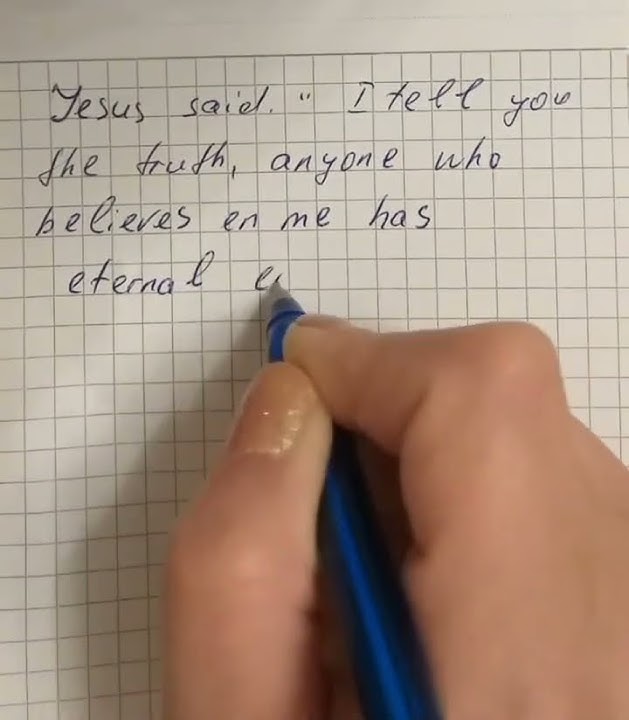 Jesus said. " I tell you
the truth, anyone who
believes en me has
eternal